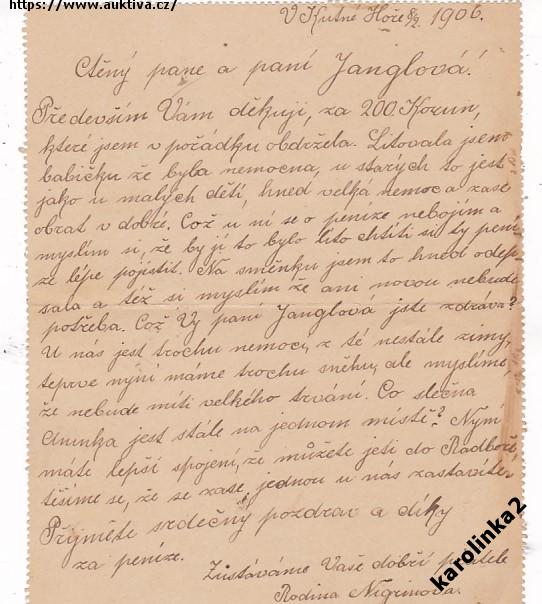 https://www.auktiva.cz/
V Kutné Hoře 8/2 1906.
Ctěný pane a paní Janglová!
Především Vám děkuji, za 200 Korun,
které jsem v pořádku obdržela. Litovala jsem
babičku že byla nemocna, u starých to jest
jako u malých dětí, hned velká nemoc a zase
obrat v dobré. Což u ní se o peníze nebojím a
myslím si, že by jí to bylo líto chtíti si ty pení
ze lépe pojistit. Na směnku jsem to hned odep
sala a též si myslím že ani novou nebude
potřeba. Což Vy paní Janglová jste zdráva?
U nás jest trochu nemoci, z té nestálé zimy,
teprve nyní máme trochu sněhu, ale myslíme,
že nebude míti velkého trvání. Co slečna
jest stále na jednom místě? Nyní
máte lepší spojení, že můžete jeti do
těšíme se, že se zase jednou u nás zastavíte.
Přijměte srdečný pozdrav a díky
za peníze.
Zůstáváme Vaše dobří přátelé
Rodina Nigrinova.
karolinka2